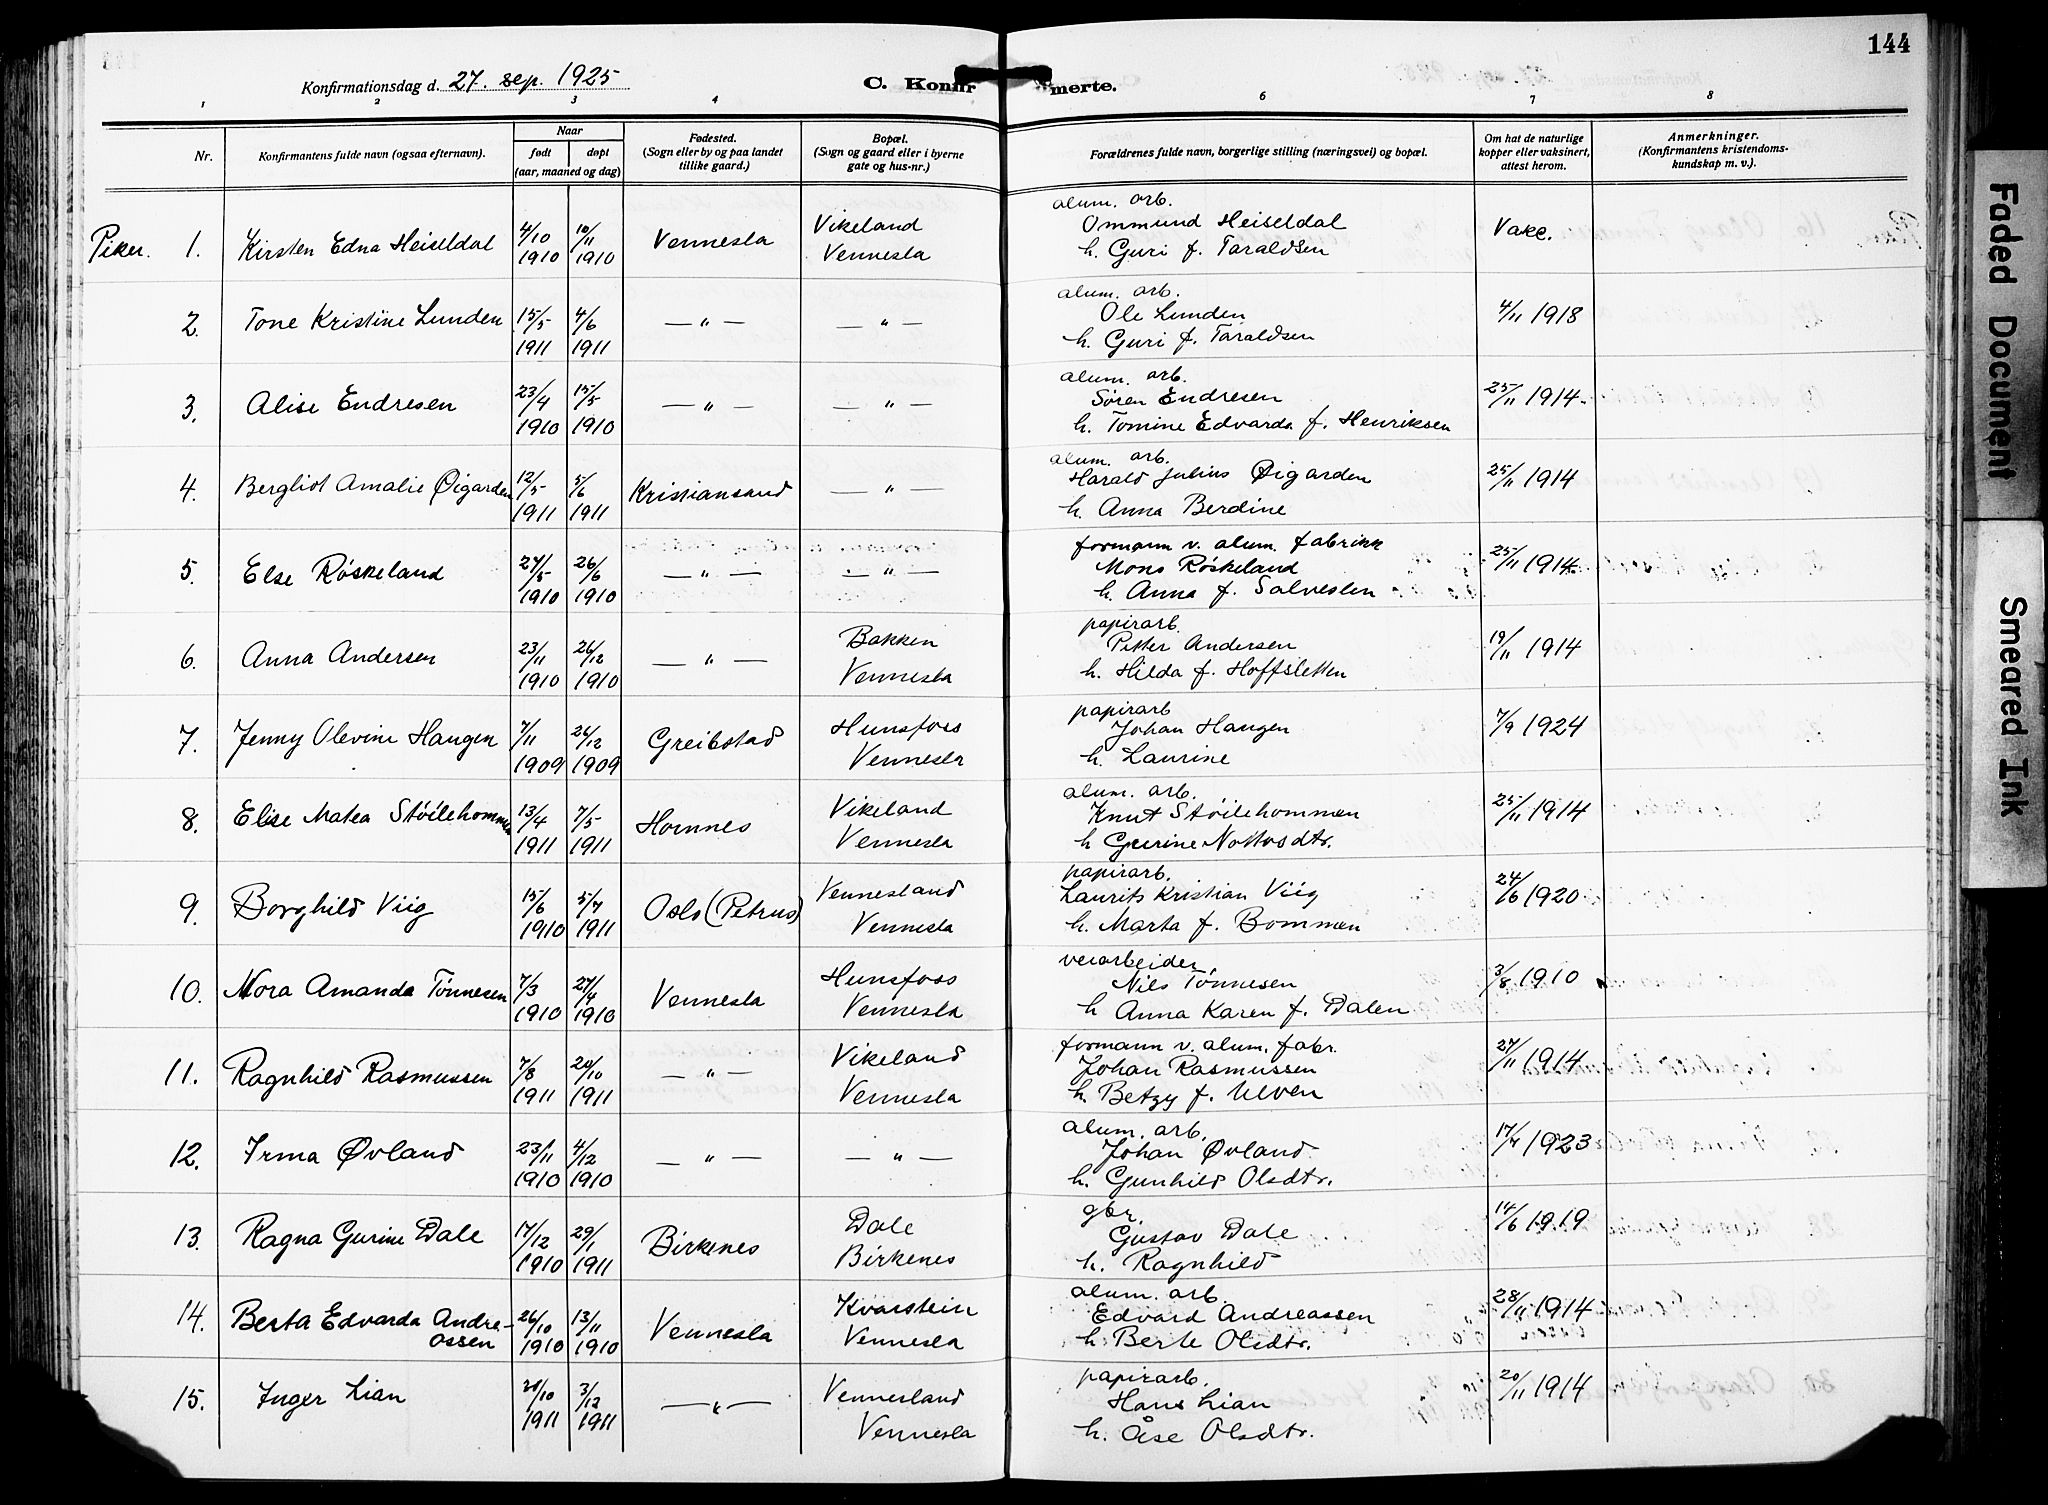 144
Konfirmationsdag d. 27. sep. 1925
C. Konfirmerte.
1 2 3 4 5 6 7 8
Nr.
Konfirmantens fulde navn (ogsaa efternavn).
Naar
født døpt
(aar, maaned og dag)
Fødested.
(Sogn eller by og paa landet
tillike gaard.)
Bopæl.
(Sogn og gaard eller i byerne
gate og hus-nr.)
Forældrenes fulde navn, borgerlige stilling (næringsvei) og bopæl.
Om hat de naturlige
kopper eller vaksinert,
attest herom.
Anmerkninger.
(Konfirmantens kristendoms-
kundskap m. v.).
Piker. 1. Kirsten Edna Heiseldal 4/10 1910 10/11 1910 Vennesla Vikeland Vennesla
alum. arb.
Ommund Heiseldal
h. Guri f. Taraldsen
Vakc.
2. Tone Kristine Lunden 15/5 1911 4/6 1911 — " — — " —
alum. arb.
Ole Lunden
h. Guri f. Taraldsen
4/11 1918
3. Alise Endresen 23/4 1910 15/5 1910 — " — — " —
alum. arb.
Søren Endresen
h. Tomine Edvarda f. Henriksen
25/11 1914
4. Bergliot Amalie Øigarden 12/5 1911 5/6 1911 Kristiansand — " —
alum. arb.
Harald Julius Øigarden
h. Anna Berdine
25/11 1914
5. Else Røskeland 27/5 1910 26/6 1910 — " — — " —
formann v. alum. fabrikk
Mons Røskeland
h. Anna f. Salvesen
25/11 1914
6. Anna Andersen 23/11 1910 26/12 1910 — " — Bakken Vennesla
papirarb.
Petter Andersen
h. Hilda f. Hoffsletten
19/11 1914
7. Jenny Olevine Haugen 7/11 1909 26/12 1909 Greibstad Hunsfoss Vennesla
papirarb
Johan Haugen
h. Laurine
7/9 1924
8. Elise Matea Støilehommen 13/4 1911 7/5 1911 Hornnes Vikeland Vennesla
alum. arb.
Knut Støilehommen
h Gurine Nottosdtr.
25/11 1914
9. Borghild Viig 15/6 1910 5/7 1911 Oslo (Petrus) Vennesland Vennesla
papirarb.
Laurits Kristian Viig
h. Marta f. Bommen
24/6 1920
10. Nora Amanda Tønnesen 7/3 1910 27/4 1910 Vennesla Hunsfoss Vennesla
veiarbeider,
Nils Tønnesen
h Anna Karen f. Dalen
3/8 1910
11. Ragnhild Rasmussen 7/8 1911 20/10 1911 — " — Vikeland Vennesla
formann v. alum. fabr.
Johan Rasmussen
h. Betzy f. Ulven
27/11 1914
12. Irma Øvland 23/11 1910 4/12 1910 — " — — " —
alum. arb.
Johan Øvland
h. Gunhild Olsdtr.
17/4 1923
13. Ragna Gurine Dale 17/12 1910 29/1 1911 Birkenes Dale Birkenes
gbr.
Gustav Dale
h. Ragnhild
14/6 1919
14. Berta Edvarda Andre-
assen 26/10 1910 13/11 1910 Vennesla Kvarstein Vennesla
alum. arb.
Edvard Andreassen
h. Berte Olsdtr.
28/11 1914
15. Inger Lian 20/10 1911 3/12 1911 — " — Vennesland Vennesla
papirarb.
Hans Lian
h. Åse Olsdtr.
20/11 1914
Faded Document
Smeared Ink